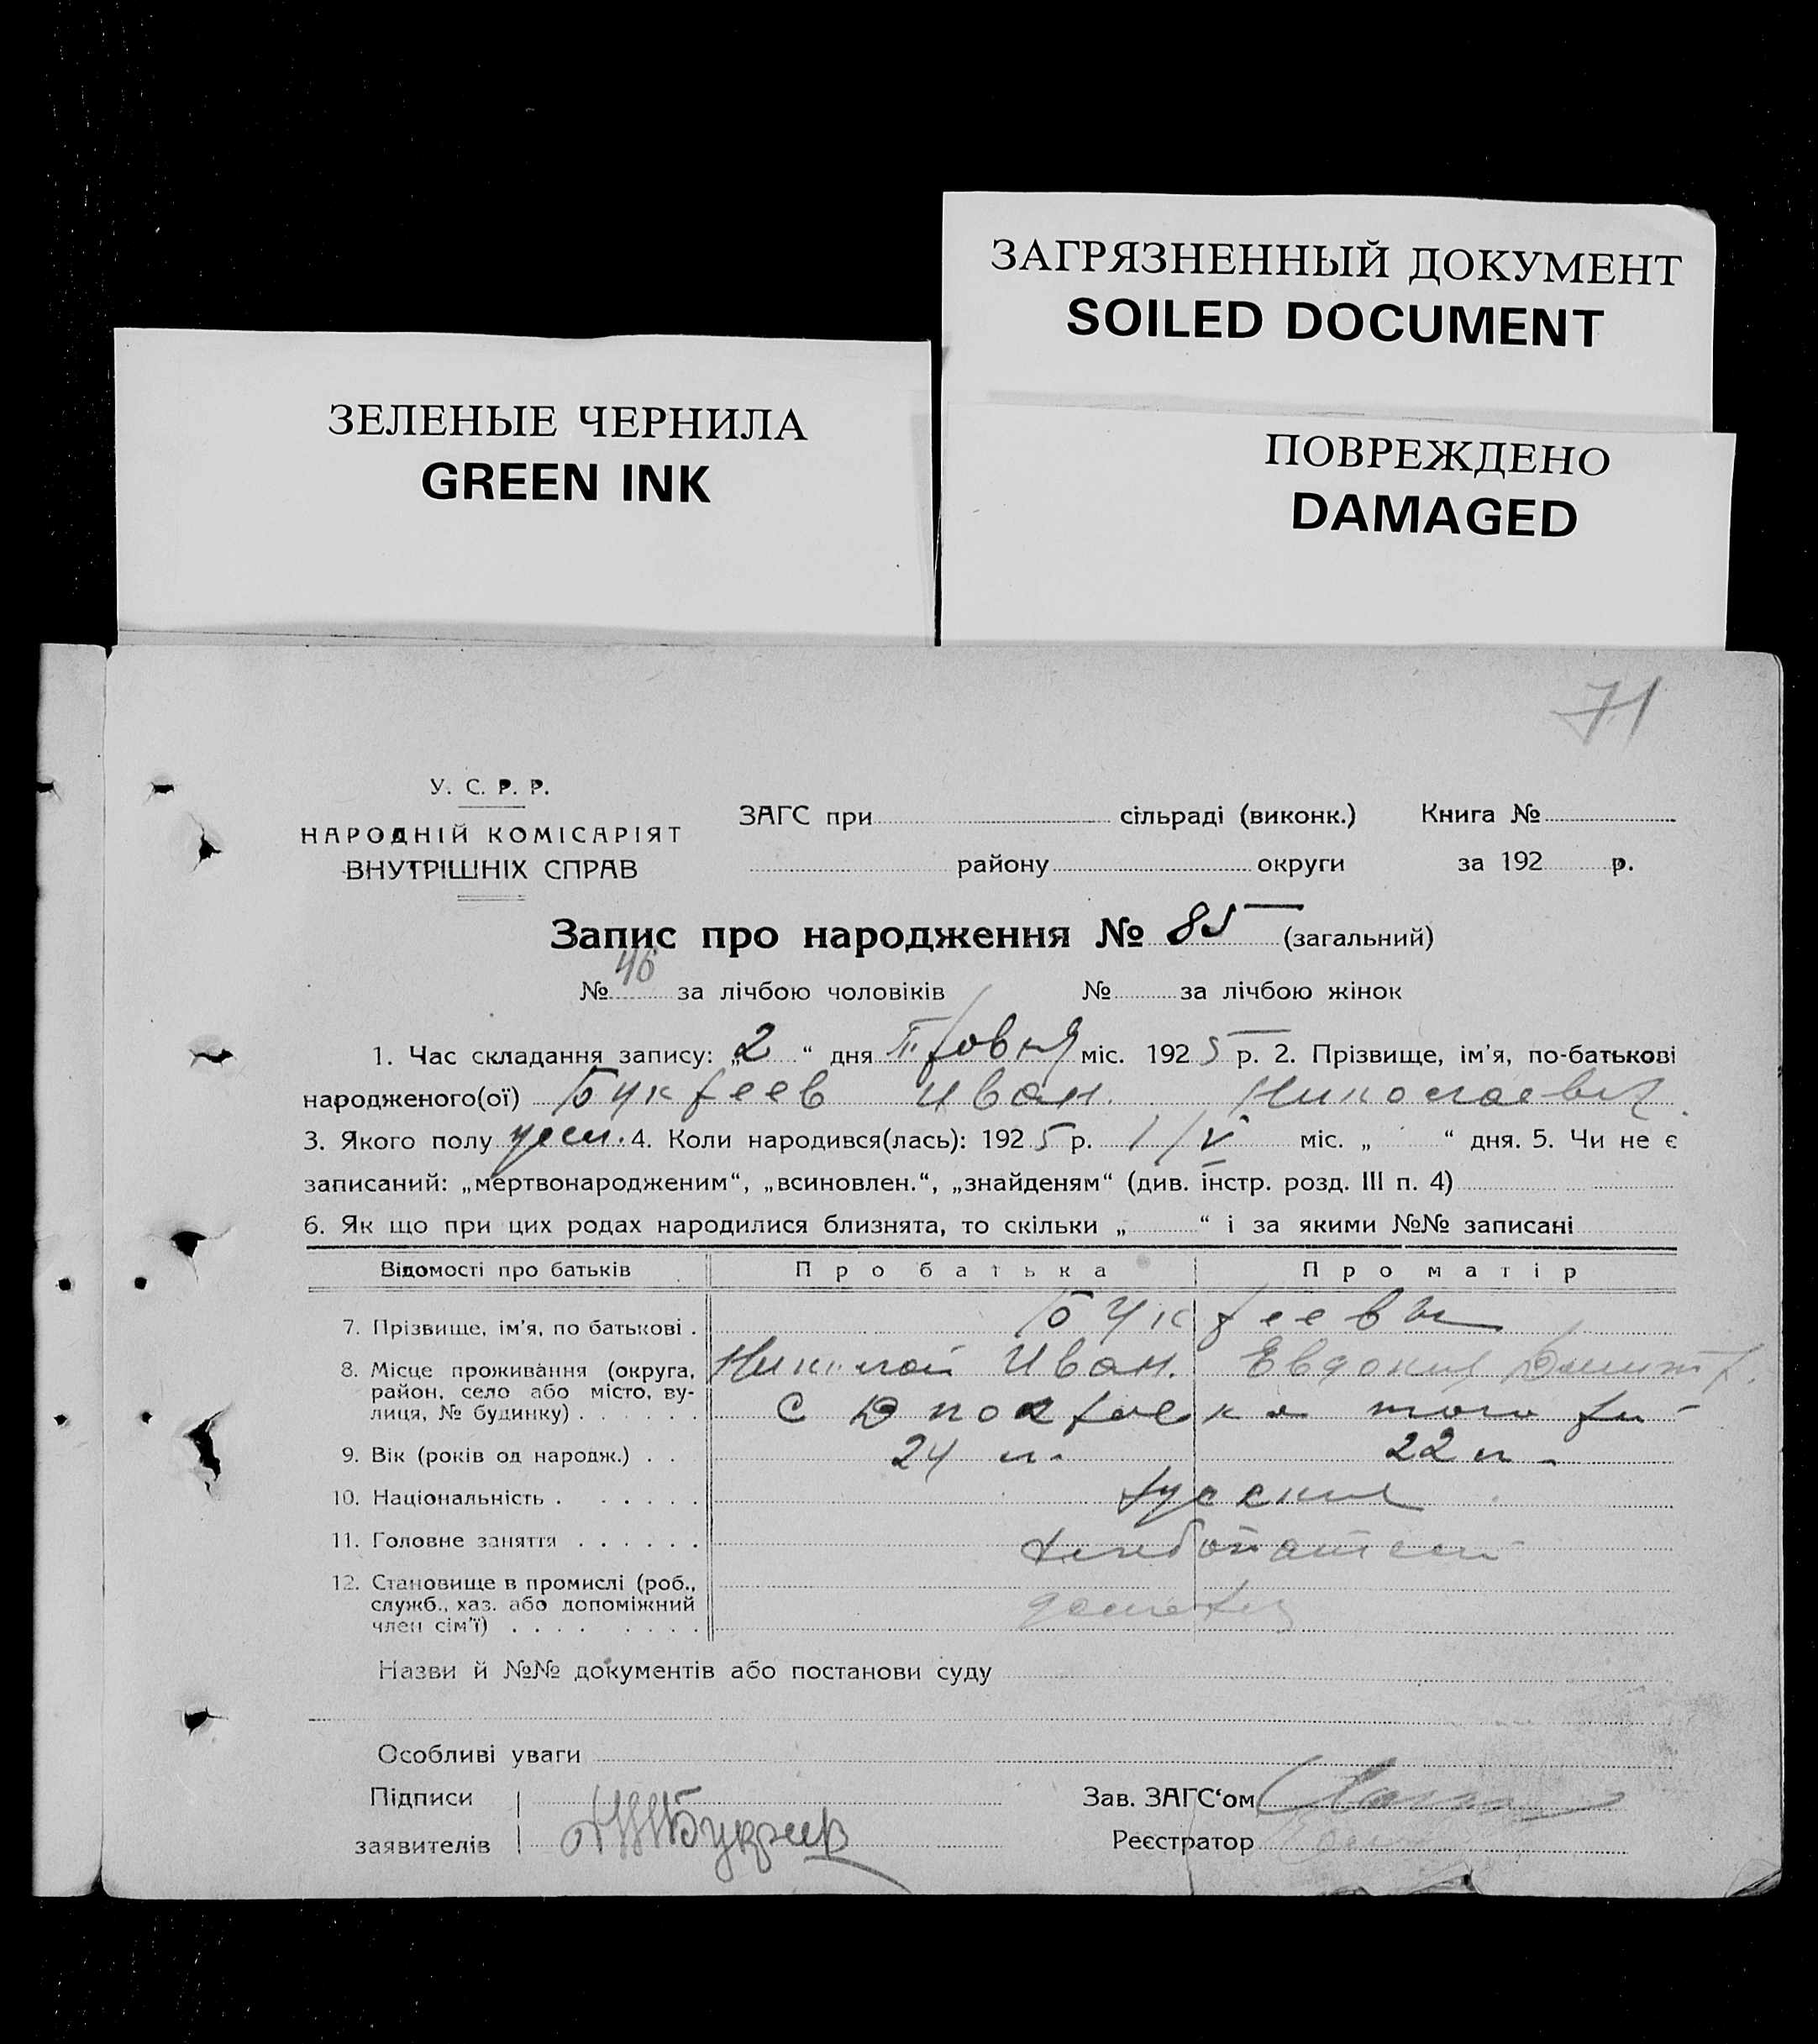 ЗАГРЯЗНЕННЫЙ ДОКУМЕНТ
SOILED DOCUMENT
ЗЕЛЕНЫЕ ЧЕРНИЛА
GREEN INK
ПОВРЕЖДЕНО
DAMAGED
71
У. С. Р. Р.
НАРОДНІЙ КОМІСАРІЯТ
ВНУТРІШНІХ СПРАВ
ЗАГС при сільраді (виконк.) Книга №
району округи за 192 р.
Запис про народження № 85 (загальний)
№ 46 за лічбою чоловіків № за лічбою жінок
1. Час складання запису: „2“ дня міс. 1925 р. 2. Прізвище, ім'я, по-батькові
народженого(ої) Букреев Иван Николаевич
3. Якого полу 4. Коли народився(лась): 1925 р. 1/V міс. „ “ дня. 5. Чи не є
записаний: „мертвонародженим“, „всиновлен.“, „знайденям“ (див. інстр. розд. III п. 4)
6. Як що при цих родах народилися близнята, то скільки „ “ і за якими №№ записані
Відомості про батьків Про батька Про матір
7. Прізвище, ім'я, по батькові . Букреевы
8. Місце проживання (округа, Николай Иван. Евдокия Дмитр.
район, село або місто, ву-
лиця, № будинку) . . . . . . с
9. Вік (років од народж.) . . 24 л. 22 л.
10. Національність . . . . . . русские
11. Головне заняття . . . . . . хлебопашец
12. Становище в промислі (роб.,
служб., хаз. або допоміжний
член сім'ї) . . . . . . . .
Назви й №№ документів або постанови суду
Особливі уваги
Підписи Зав. ЗАГС'ом
заявителів Реєстратор